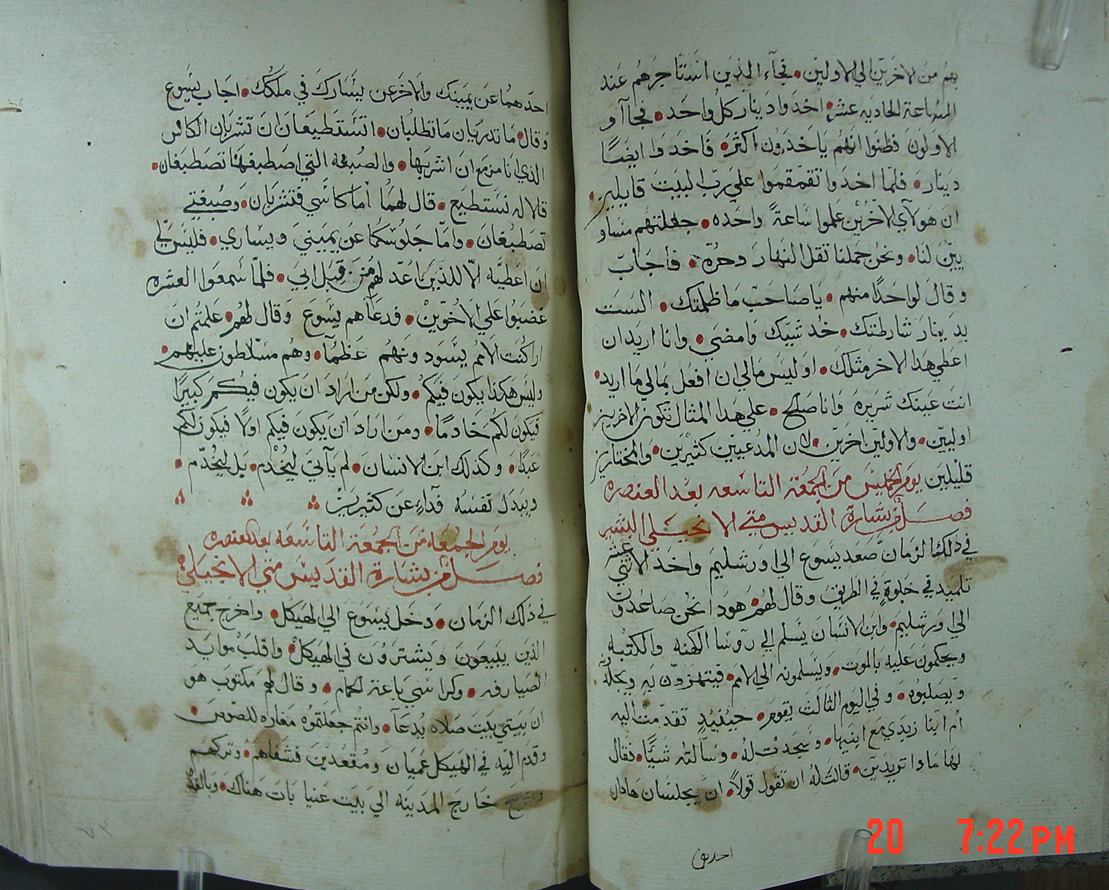 بهم من الاخرين الي الاولين • فجآء الذين استاجرهم عند
الساعة الحاديه عشر • اخدوا دينار كل واحد • فجاآو
الاولون وظنوا انهم ياخدون اكثر • فاخدوا ايضًا
دينار • فلما اخدوا تقمقموا علي رب البيت قايلين •
ان هولآي الاخرين عملوا ساعةً واحده • جعلتهم مساو
يين لنا • ونحن حملنا ثقل النهار وحره • فاجاب
وقال لواحدًا منهم • ياصاحب ما ظلمتك • الست
بدينار شارطتك • خد شييك وامضي • وانا اريد ان
اعطي هدا الاخر مثلك • او ليس مالي ان افعل بمالي ما اريد •
انت عينك شريره وانا صالح • علي هدا المثال تكون الاخرين
اوليين • والاولين اخرين • لان المدعيين كثيرين • والمختارين
قليلين يوم الخميس من الجمعة التاسعه بعد العنصره
فصل من بشارة القديس متي الانجيلي البشير
في دلك الزمان صعد يسوع الي اورشليم واخد الاثني عشر
تلميد في خلوة في الطريق وقال لهم • هودا نحن صاعدون
الي اورشليم • وابن الانسان يسلم الي روسا الكهنه والكتبه
ويحكمون عليه بالموت • ويسلمونه الي الامم • فيتهزون به ويجلدونه
ويصلبوه • وفي اليوم الثالث يقوم • حينيدٍ تقدمت اليه
ام ابنا زبدي مع ابنيها • وسجدت له • وسالته شيًا • فقال
لها مادا تريدين • قالت له ان تقول قولاً • ان يجلسان هادان
احدهما
احدهما عن يمينك والاخر عن يسارك في ملكك • اجاب يسوع
وقال • ما تدريان ما تطلبان • اتستطيعان ان تشربان الكاس
الذي انا مزمع ان اشربها • والصبغه التي اصطبغها تصطبغان •
قالا له نستطيع • قال لهما اما كاسي فتشربان • وصبغتي
تصطبغان • واما جلوسكما عن يميني ويساري • فليس لي
ان اعطيه الا للذين اعد لهم من قبل ابي • فلما سمعوا العشره
غضبوا علي الاخوين • فدعاهم يسوع وقال لهم • علمتم ان
اراكنت الامم يسودونهم عظمآ • وهم مسلطون عليهم •
وليس هكدا يكون فيكم • ولكن من اراد ان يكون فيكم كبيرًا
فيكون لكم خادمًا • ومن اراد ان يكون فيكم اولاً فيكون لكم
عبدًا • وكدلك ابن الانسان • لم يآتي ليُخدم • بل ليخدم •
ويبدل نفسه فدآء عن كثيرين
يوم الجمعه من الجمعة التاسعه بعد العنصره
فصل من بشارة القديس متي الانجيلي
في دلك الزمان • دخل يسوع الي الهيكل • واخرج جميع
الذين يبيعون ويشترون في الهيكل • واقلب موايد
الصيارفه • وكراسي باعة الحمام • وقال لهم مكتوب هو
ان بيتي بيت صلاه يدعآ • وانتم جعلتموه مغاره للصوص •
وقدم اليه في الهيكل عميان ومقعدين فشفاهم • وتركهم
وخرج خارج المدينه الي بيت عنيا بات هناك • وبالغد
٧٣
20 7:22 PM